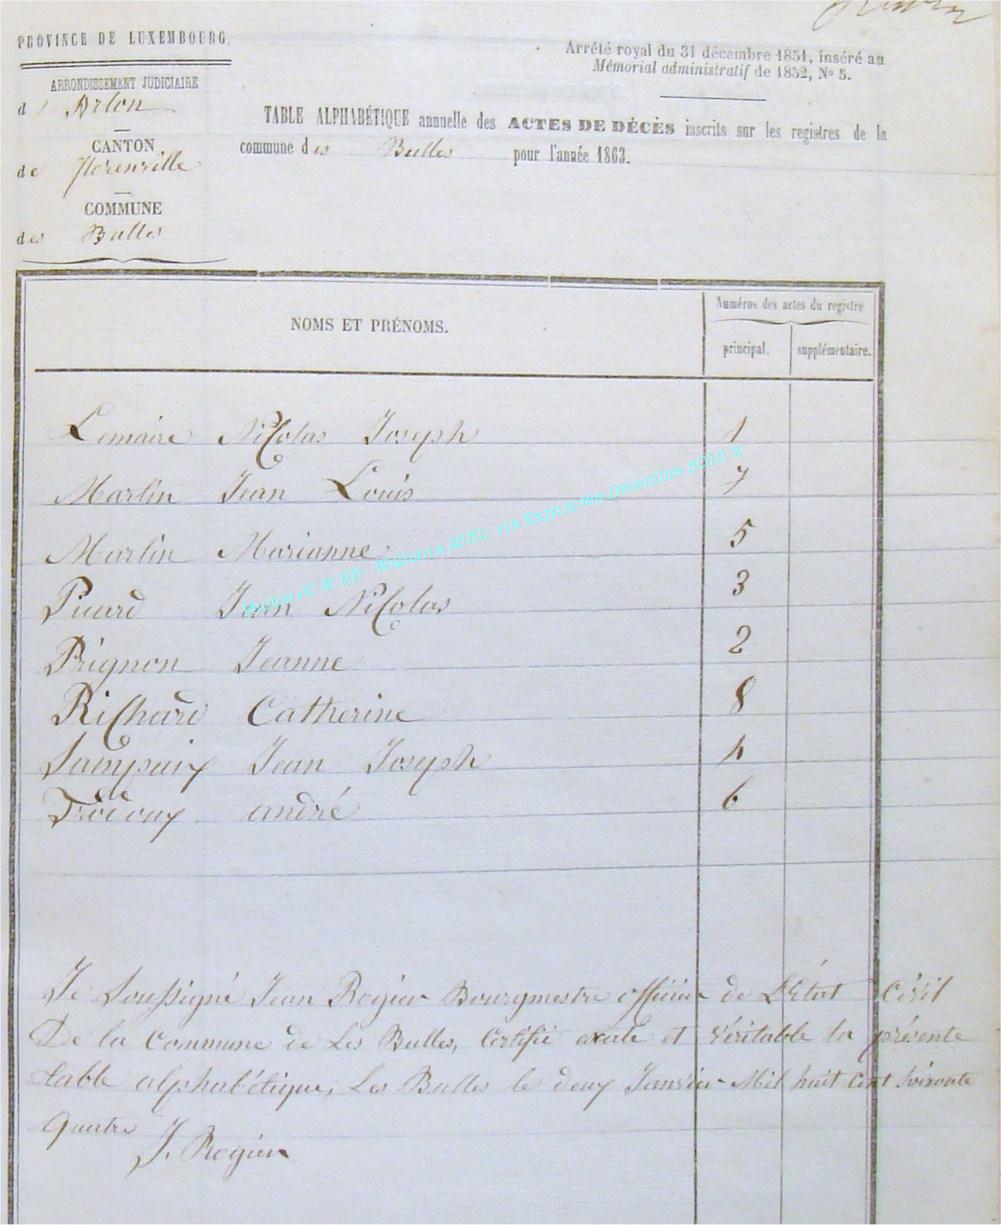 PROVINCE DE LUXEMBOURG.
ARRONDISSEMENT JUDICIAIRE
d' Arlon
CANTON
de Florenville
COMMUNE
des Bulles
Arrêté royal du 31 décembre 1851, inséré au
Mémorial administratif de 1852, No 5.
TABLE ALPHABÉTIQUE annuelle des ACTES DE DÉCÈS inscrits sur les registres de la
commune des Bulles pour l'année 1863.
NOMS ET PRÉNOMS.
Numéros des actes du registre
principal. supplémentaire.
Lemaire Nicolas Joseph 1
Martin Jean Louis 7
Martin Marianne 5
Pierard Jean Nicolas 3
Prignon Jeanne 2
Richard Catherine 8
Sampaix Jean Joseph 4
Trodoux andré 6
Je Soussigné Jean Rogier Bourgmestre officier de L'État Civil
De la Commune de Les Bulles, Certifie exacte et véritable la présente
table alphabétique, Les Bulles le deux Janvier Mil huit Cent Soixante
quatre
J. Rogier
Décembre 2012